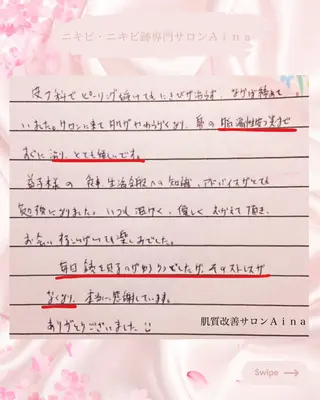 ニキビ・ニキビ跡専門サロンAina
皮フ科でピーリング続けてもにきびが治らず、なかば諦めて
いました。サロンに来て肌がやわらかくなり、鼻の脂漏性皮フ炎まで
すぐに治り、とても嬉しいです。
の食生活全般への知識、アドバイスがとても
勉強になりました。いつも温かく、優しくむかえて頂き、
お会い
毎日鏡を見るのがゆううつでしたが、そのストレスが
なくなり、本当に感謝しています。
ありがとうございました
肌質改善サロンAina
Swipe